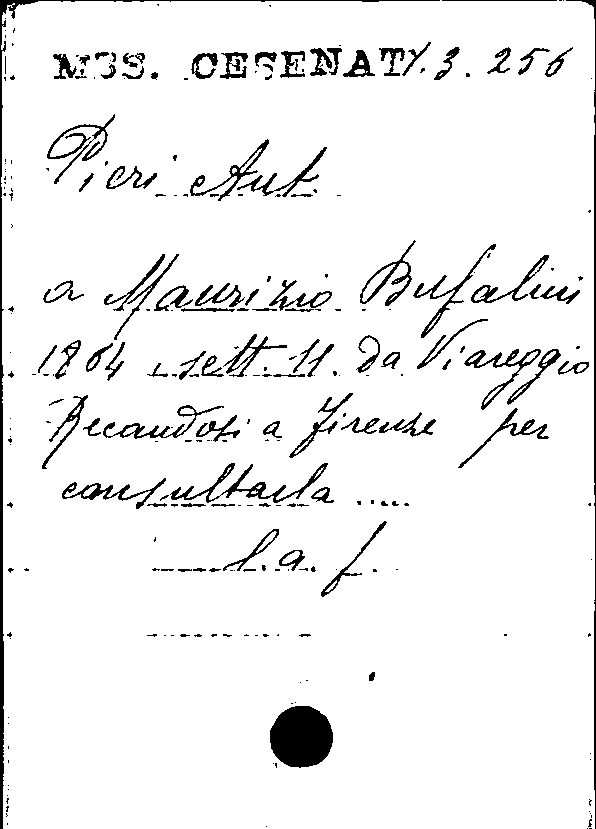 MSS. CESENATI. 3. 256
Pieri Ant.
a Maurizio Bufalini
1864, sett. 11. da Viareggio
Recandosi a Firenze per
consultarla .....
l. a. f.